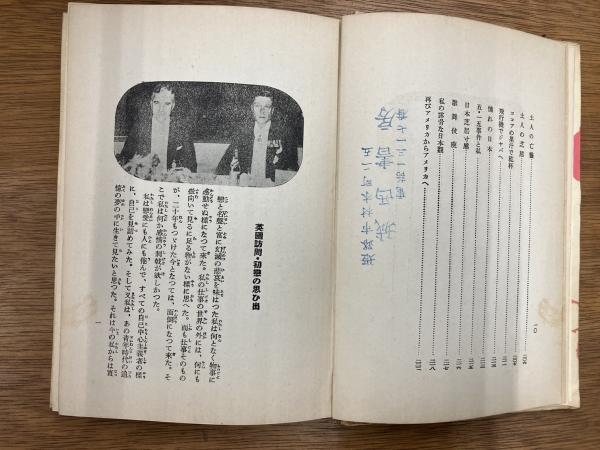 土人の亡靈
土人の芝居
ココアの果汁で乾杯
飛行機でジャバへ
憧れの日本
五・一五事件と私
日本芝居寸感
歌舞伎座
私の諧謔な日本觀
再びアメリカからアメリカへ
一〇
姫路市材木町二五
城西書房
電話一三一七番
英國訪問・初戀の思ひ出
戀と名聲と富に幻滅の悲哀を味はつた私は何となく物事に
感動せぬ樣になつて來た。私の仕事の世界の外には、何にも
振向いて見るに足る物がない樣に思へた。而も仕事そのもの
が、二十年もつゞけた今となつては、面倒になつて來た。そ
こで私は何か感情の刺戟が欲しかつた。
私は戀愛にも人にも倦んで、すべての自己中心主義者の樣
に、自己を見詰めてみた。そして又私は、あの青年時代の追
憶の夢の中に生きて見たいと思つた。それは今の私からは寛
一